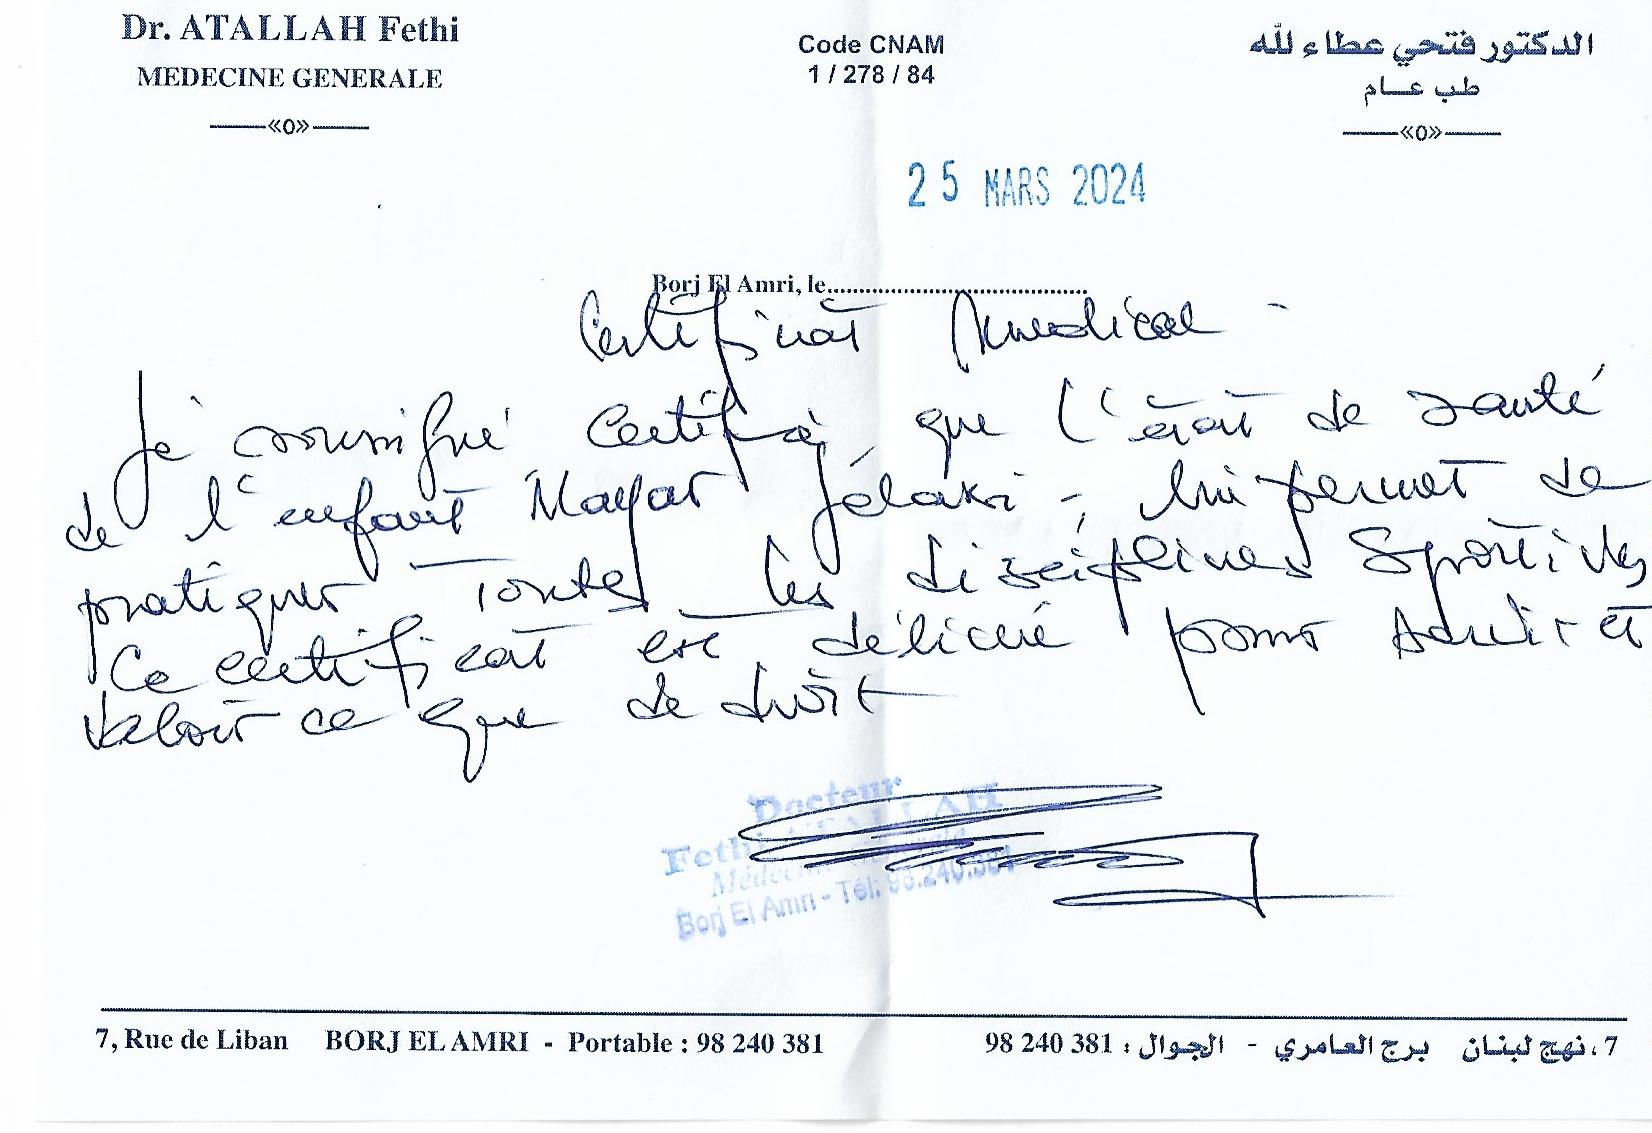 Dr. ATALLAH Fethi
MEDECINE GENERALE
«O»
Code CNAM
1 / 278 / 84
الدكتور فتحي عطاء لله
طب عام
«O»
25 MARS 2024
Borj El Amri, le
Certificat Medical
Je soussigné certifie que l'état de santé
de l'enfant Mayar Jelassi lui permet de
pratiquer toutes les disciplines sportives
Ce certificat est délivré pour servir et
valoir ce que de droit
Docteur
Fethi ATALLAH
Médecine Générale
Borj El Amri - Tél: 98.240.381
7, Rue de Liban BORJ EL AMRI - Portable : 98 240 381
7، نهج لبنان برج العامري - الجوال : 381 240 98